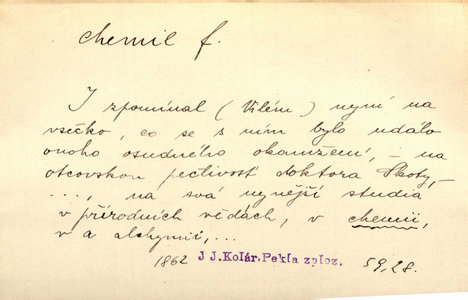 chemie f.
I zpomínal (Vilém) nyní na
všecko, co se s ním bylo událo
onoho osudného okamžení, – na
otcovskou pečlivost doktora Skoty,
..., na svá nynější studia
v přírodních vědách, v chemii,
v a alchymii,...
1862 J J.Kolár.Pekla zploz. 59,28.